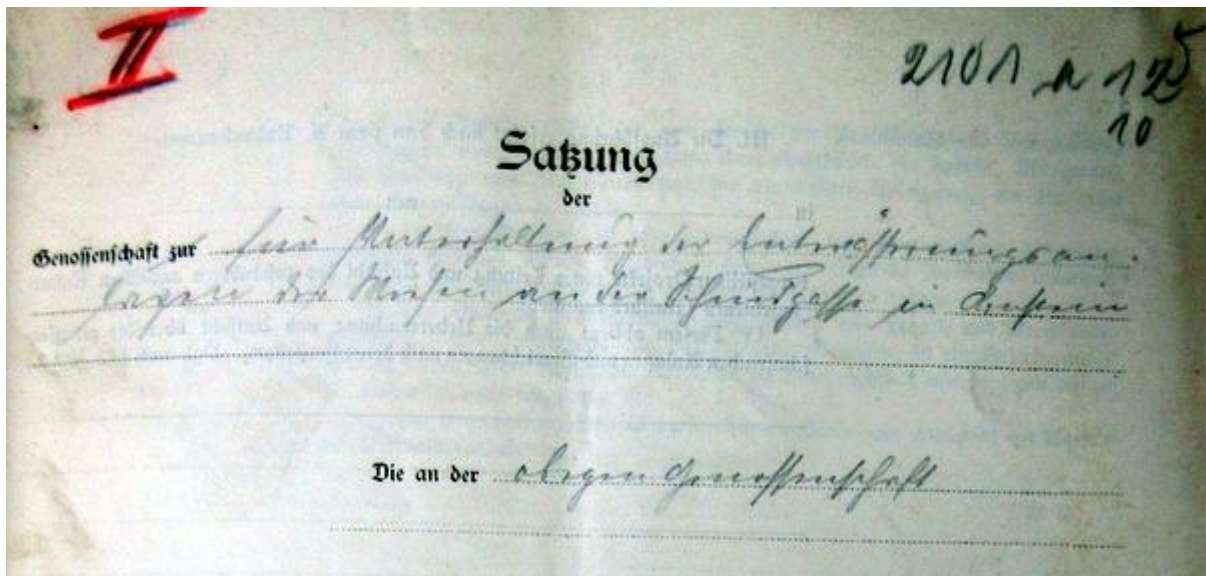 II
2101 a 12
10
Satzung
der
Genossenschaft zur für Unterhaltung der Entwässerungsan-
lagen der Wiesen an der in
Die an der obigen Genossenschaft